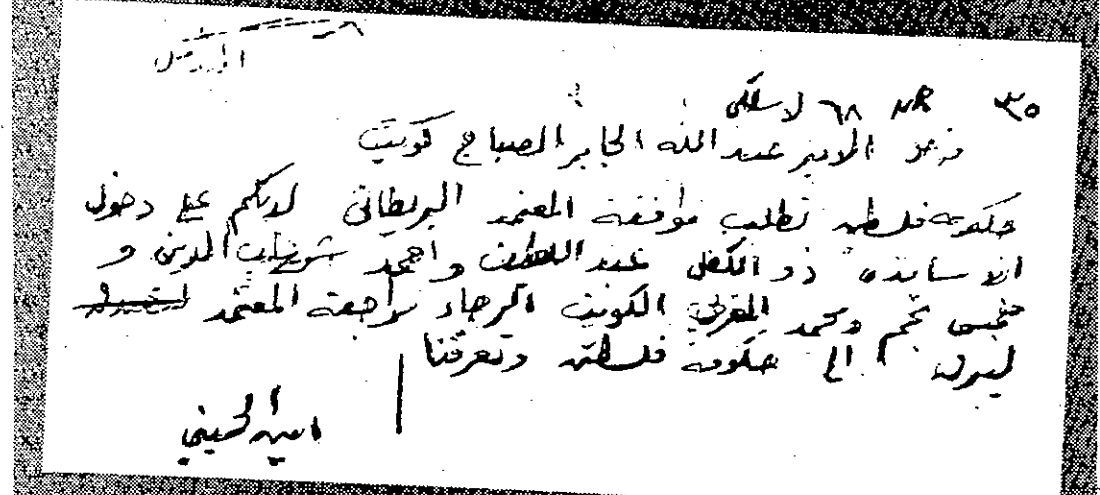 الاصل
٣٥ NR ٦٨ لاسلكي
الامير عبد الله الجابر الصباح كويت
حكومة فلسطين تطلب موافقة المعتمد البريطاني لديكم على دخول
الاساتذه ذو الكفل عبد اللطيف واحمد شهاب الدين و
خميس نجم ومحمد المغربي الكويت الرجاء مراجعة المعتمد
ليبرق الى حكومة فلسطين وتعرفنا
امين الحسيني